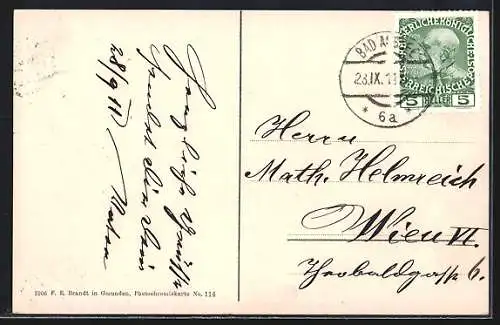 28/9 11
Herzliche Grüsse
sendet Dir Dein
BAD AUSSEE
28.IX.11
* 6a *
KAISERLICHE KÖNIGLICHE ÖSTERREICHISCHE POST
5 HELLER 5
Herrn
Math. Helmreich
Wien VI.
Theobaldgasse 6.
2906 F. E. Brandt in Gmunden, Photochromiekarte No. 114